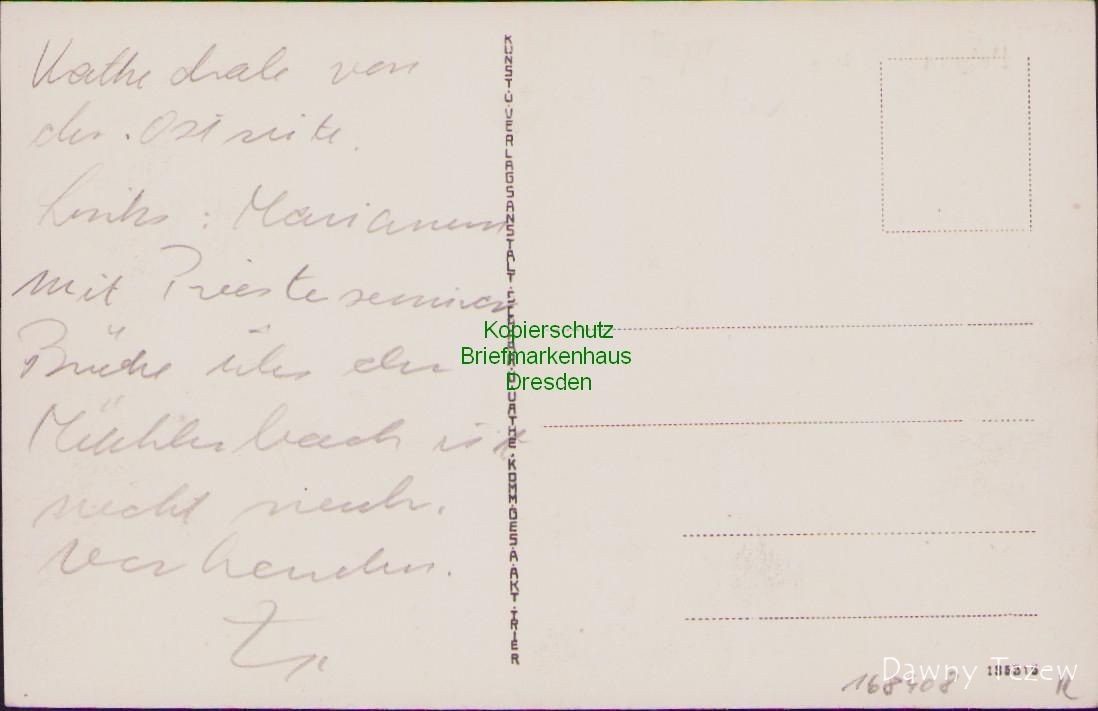 Kathedrale von
der Ostseite.
Links: Marianum
mit Priesterseminar
Brücke über den
Mühlenbach ist
nicht mehr.
Vorhanden.
KUNST.U.VERLAGSANSTALT.SCHAAR.U.DATHE.KOMM.GES.A.AKT.TRIER
Kopierschutz
Briefmarkenhaus
Dresden
Dawny Tczew
168408
R